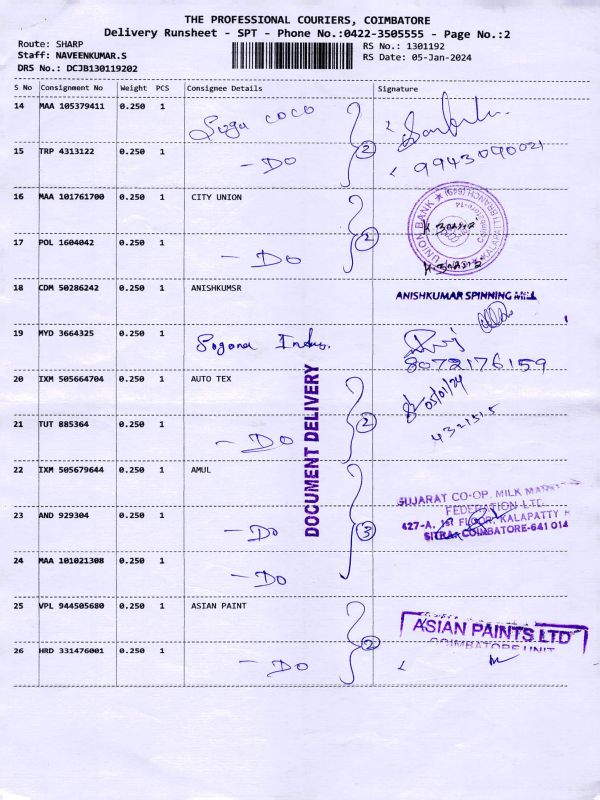 THE PROFESSIONAL COURIERS, COIMBATORE
Delivery Runsheet - SPT - Phone No.:0422-3505555 - Page No.:2
Route: SHARP
Staff: NAVEENKUMAR.S
DRS No.: DCJB130119202
RS No.: 1301192
RS Date: 05-Jan-2024
S No Consignment No Weight PCS Consignee Details Signature
14 MAA 105379411 0.250 1 COCO
15 TRP 4313122 0.250 1 - DO 2 9943090021
16 MAA 101761700 0.250 1 CITY UNION
17 POL 1604042 0.250 1 - DO 2
UNION BANK
18 CDM 50286242 0.250 1 ANISHKUMSR ANISHKUMAR SPINNING MILL
19 MYD 3664325 0.250 1 Indus. 8072176159
20 IXM 505664704 0.250 1 AUTO TEX 05/01/24
21 TUT 885364 0.250 1 - DO 2
DOCUMENT DELIVERY
22 IXM 505679644 0.250 1 AMUL
GUJARAT CO-OP. MILK
FEDERATION LTD.
427-A, 1st FLOOR, KALAPATTY
SITRA, COIMBATORE-641 014
23 AND 929304 0.250 1 - DO 3
24 MAA 101021308 0.250 1 - DO
25 VPL 944505680 0.250 1 ASIAN PAINT
ASIAN PAINTS LTD
COIMBATORE UNIT
26 HRD 331476001 0.250 1 - DO 2